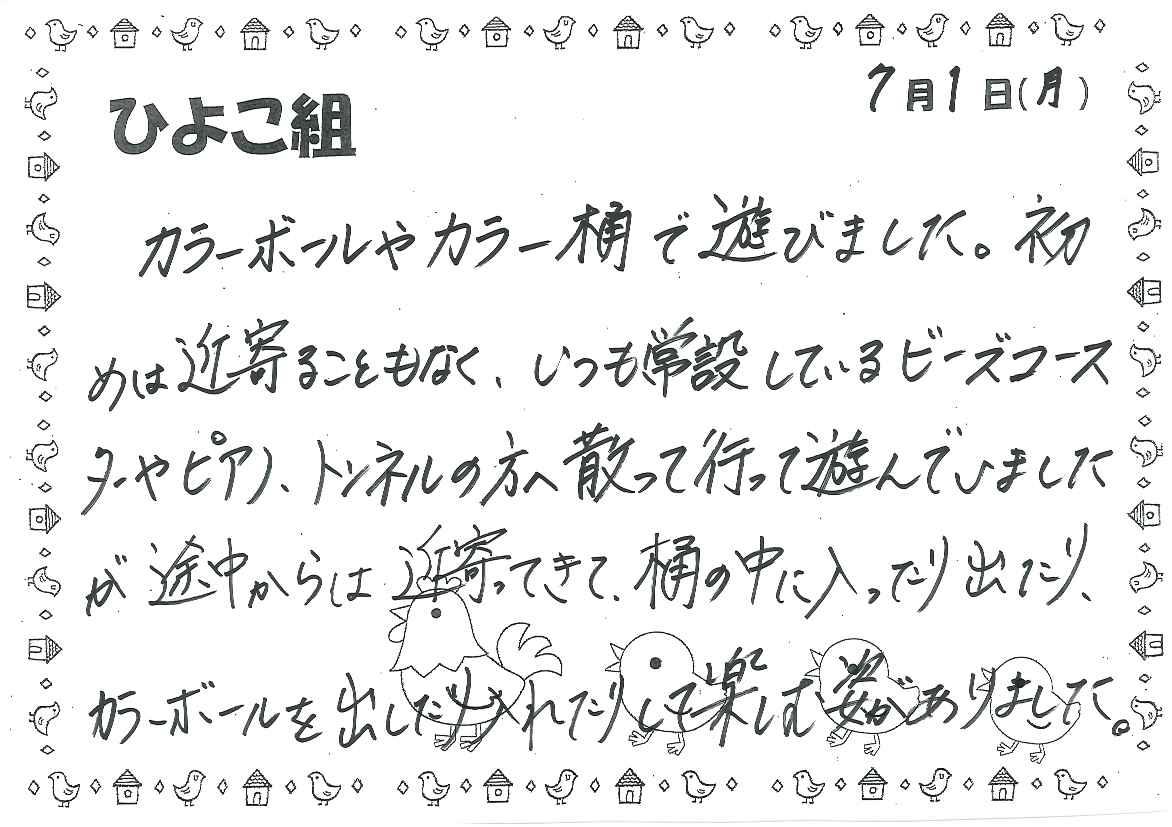 7月1日(月)
ひよこ組
カラーボールやカラー桶で遊びました。初
めは近寄ることもなく、いつも常設しているビーズコース
ターやピアノ、トンネルの方へ散って行って遊んでいました
が途中からは近寄ってきて、桶の中に入ったり出たり、
カラーボールを出したり入れたりして楽しむ姿がありました。